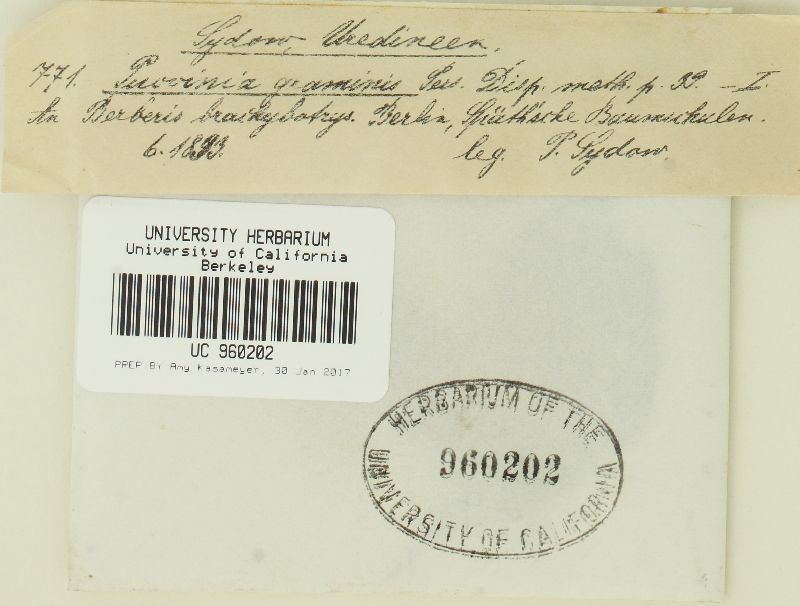 Sydow, Uredineen.
771. Puccinia graminis Pers. Disp. meth. p. 39. – I.
An Berberis brachybotrys. Berlin, Späth'sche Baumschulen.
6. 1893. leg. P. Sydow.
UNIVERSITY HERBARIUM
University of California
Berkeley
UC 960202
PREP BY Amy Kasameyer, 30 Jan 2017
HERBARIUM OF THE
960202
UNIVERSITY OF CALIFORNIA